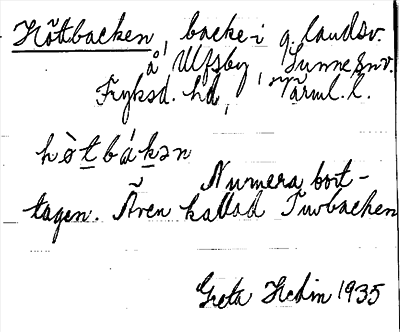 Höttbacken, backe i g. landsv.
å Ulfsby, Sunne snv.
Fryksd. hd, Värml. l.
hø̀tbákən
Numera bort-
tagen. Även kallad Turbacken
Greta Hedin 1935